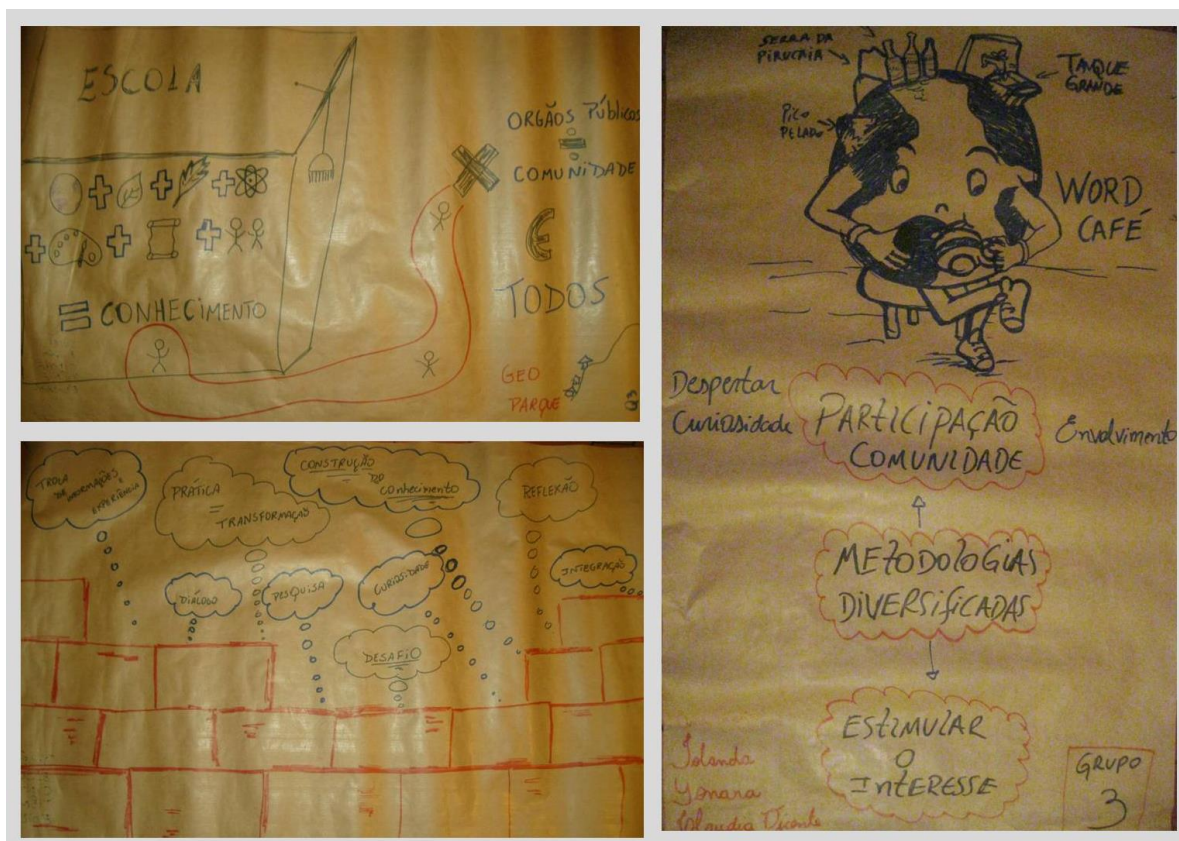 ESCOLA
= CONHECIMENTO
ORGÃOS Públicos
COMUNIDADE
TODOS
GEO
PARQUE
TROCA
DE INFORMAÇÕES E
EXPERIÊNCIA
PRÁTICA
=
TRANSFORMAÇÃO
CONSTRUÇÃO
DO
conhecimento
REFLEXÃO
DIÁLOGO
PESQUISA
CURIOSIDADE
INTEGRAÇÃO
DESAFIO
SERRA DA
PIRUCAIA
TANQUE
GRANDE
PICO
PELADO
WORD
CAFÉ
Despertar
Curiosidade
PARTICIPAÇÃO
COMUNIDADE
Envolvimento
METODOLOGIAS
DIVERSIFICADAS
ESTIMULAR
O
INTERESSE
Iolanda
Yonara
GRUPO
3